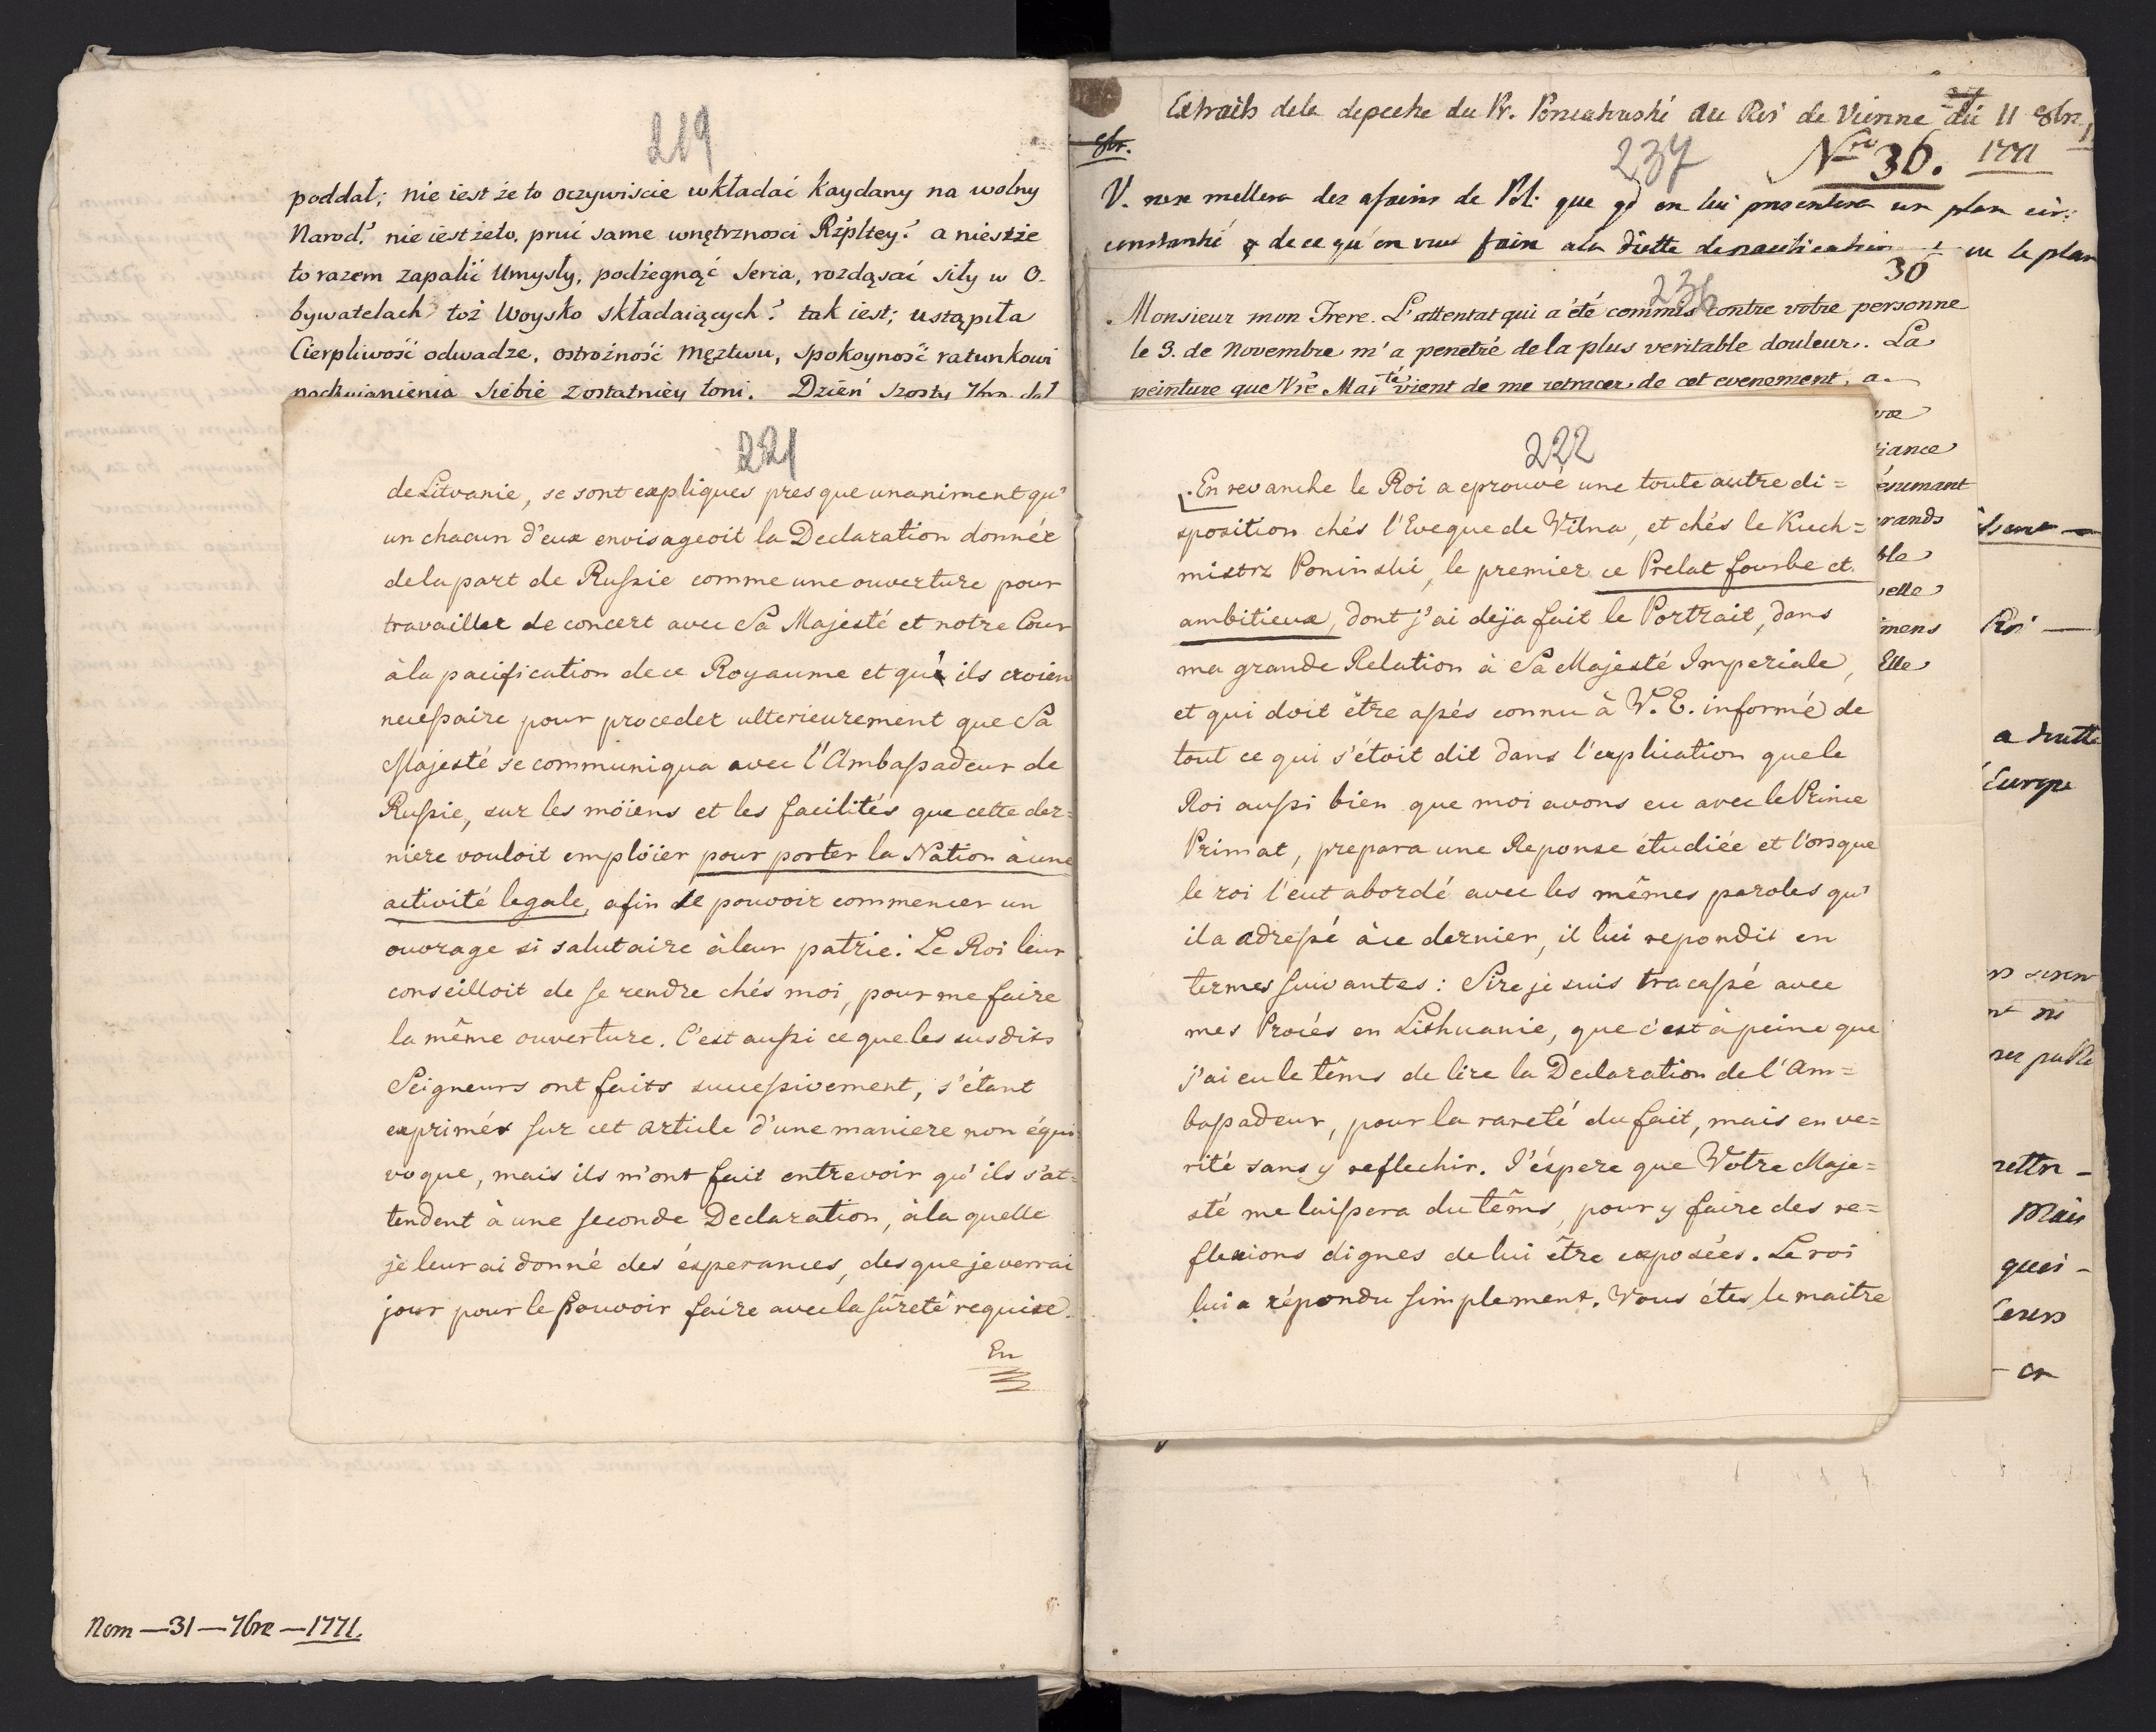 219
poddał; nie iest że to oczywiscie wkładać kaydany na wolny
Narod? nie iest żeto, pruć same wnętrznosci Rzpltey? a niesże
to razem zapalić Umysły, podżegnąć Seria, rozdąsać siły w O-
bywatelach toż Woysko składaiących? tak iest; ustąpiła
Cierpliwość odwadze, ostrożność męztwu, spokoyność ratunkowi
siebie z ostatniéy toni. Dzień szosty 7bra dał
221
de Litvanie, se sont expliques presque unaniment qu'
un chacun d'eux envisageoit la Declaration donnée
de la part de Russie comme une ouverture pour
travailler de concert avec Sa Majesté et notre Cour
à la pacification de ce Royaume et qu' ils croien
necessaire pour proceder ulterieurement que Sa
Majesté se communiqua avec l'Ambassadeur de
Russie, sur les möiens et les facilités que cette der=
niere vouloit emplöier pour porter la Nation à une
activité legale, afin de pouvoir commencer un
ouvrage si salutaire à leur patrie. Le Roi leur
conseilloit de se rendre chés moi, pour me faire
la même ouverture. C'est aussi ce que les susdits
Seigneurs ont faits successivement, s'étant
exprimés sur cet article d'une maniere non équi=
voque, mais ils m'ont fait entrevoir qu'ils s'at=
tendent à une seconde Declaration, à la quelle
je leur ai donné des ésperances, des que je verrai
jour pour le pouvoir faire avec la sûreté requise.
En
Nom — 31 — 7bre — 1771.
Extraits de la depeche du Pr. Poniatowski au Roi de Vienne du 11 8bre
8br.
237
Nro 36. 1771
V. ne se mellera des afaires de Pol. que qd on lui presentera un plan cir:
constantié & de ce qu'on veut faire a la diette de pacification
ou le plan
36
236
Monsieur mon Frere. L'attentat qui a été commis contre votre personne
le 3. de Novembre m'a penetré de la plus veritable douleur. La
peinture que Vre Majté vient de me retracer de cet evenement, a
222
En revanche le Roi a eprouvé une toute autre di=
sposition chés l'Eveque de Vilna, et chés le Kuch=
mistrz Poninski, le premier ce Prelat fourbe et
ambitieux, dont j'ai dëja fait le Portrait, dans
ma grande Relation à Sa Majesté Imperiale,
et qui doit être assés connu à V. E. informé de
tout ce qui s'étoit dit dans l'explication que le
Roi aussi bien que moi avons eu avec le Prince
Primat, prepara une Reponse étudiée et lorsque
le roi l'eut abordé avec les mêmes paroles qu'
il a adressé à ce dernier, il lui repondit en
termes suivantes: Sire je suis tracassé avec
mes Procés en Lithuanie, que c'est à peine que
j'ai eu le têms de lire la Declaration de l'Am=
bassadeur, pour la rareté du fait, mais en ve=
rité sans y reflechir. J'éspere que Votre Maje=
sté me laissera du têms, pour y faire des re=
flexions dignes de lui être exposées. Le roi
lui a répondu simplement. Vous étes le maitre
iance
ésumant
rands
ble
velle
mens
Elle
Roi —
Europe
Mais